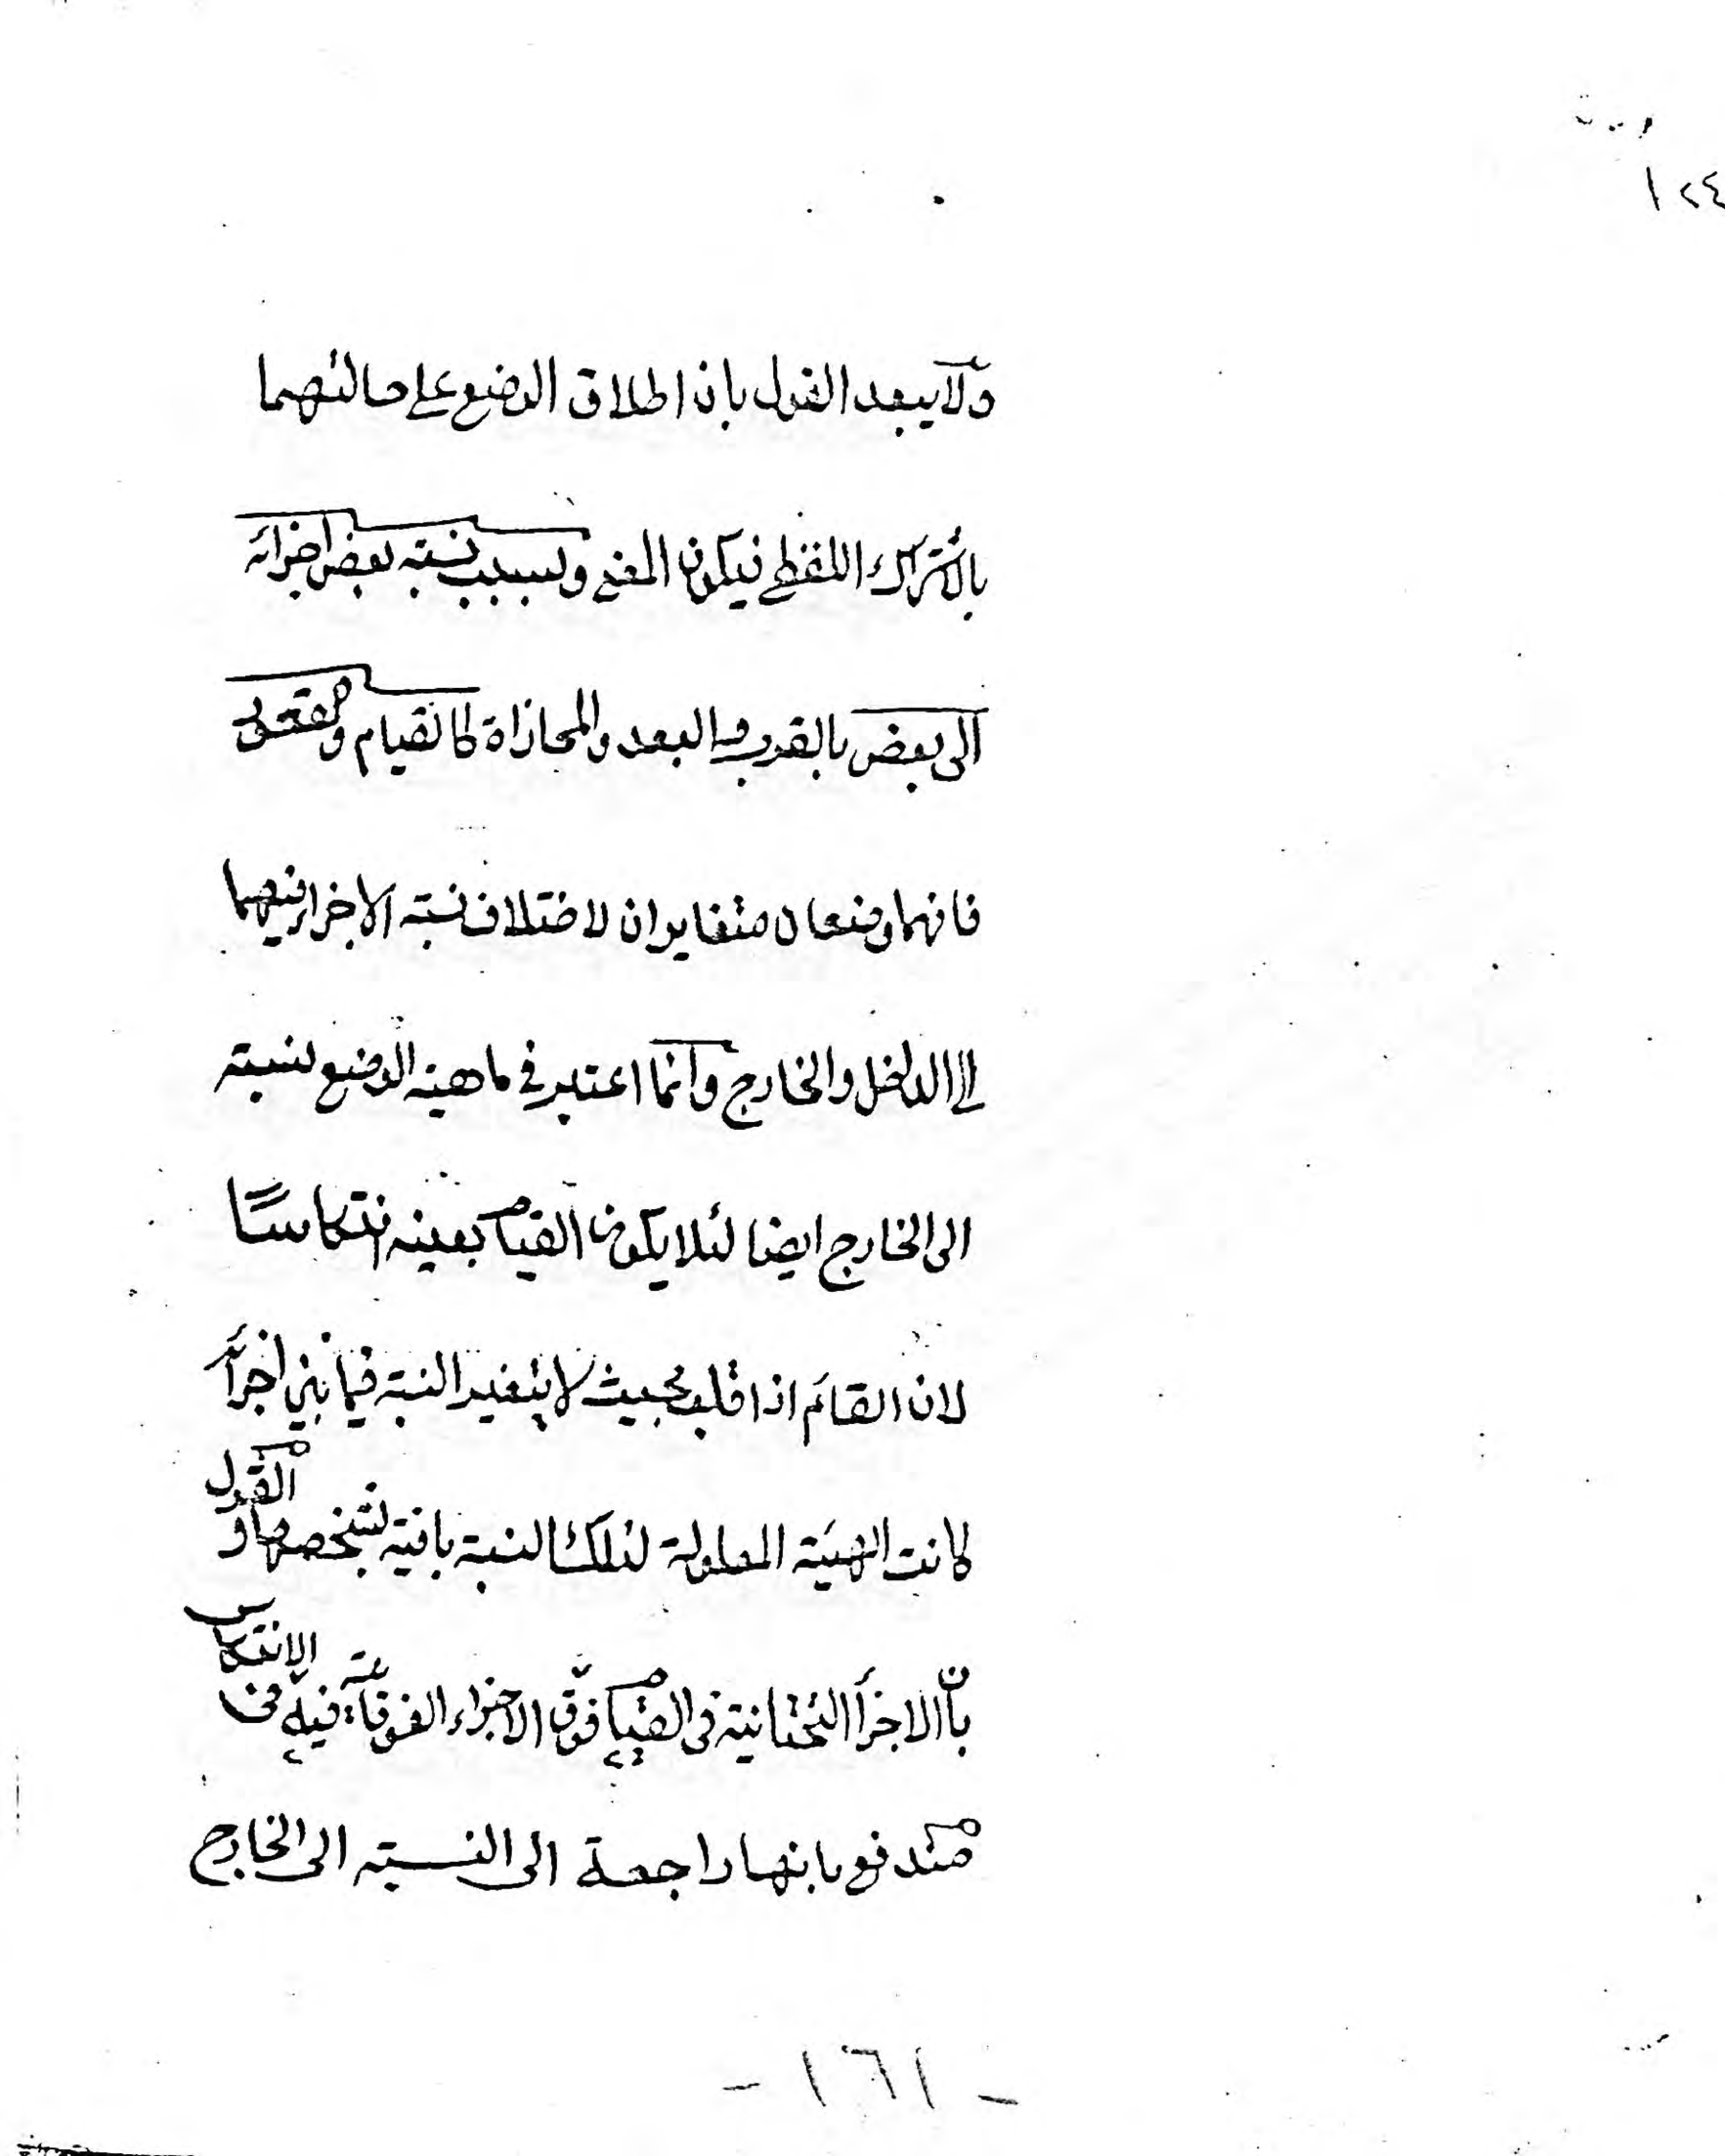 ١٢٤
ولا يبعد القول بان اطلاق الوضع على حالتهما
بالاشتراك اللفظي فيكون المعنى وبسبب نسبة بعض اجزائه
الى بعض بالقرب والبعد والمحاذاة كالقيام و
فانهما وضعان متغايران لاختلاف نسبة الاجزاء فيهما
الى الداخل والخارج وانما اعتبر في ماهية الوضع نسبة
الى الخارج ايضا لئلا يكون القيام بعينه انتكاسًا
لان القائم اذا قلب بحيث لا يتغير النسبة فيما بين اجزائه
كانت الهيئة المعلولة لتلك النسبة باقية بشخصها والقول
بان الاجزأ التحتانية في القيام فوق الاجزاء الفوقانية فيه في الانتكاس
مندفع بانها راجعة الى النسبة الى الخارج
- ١٦١ -